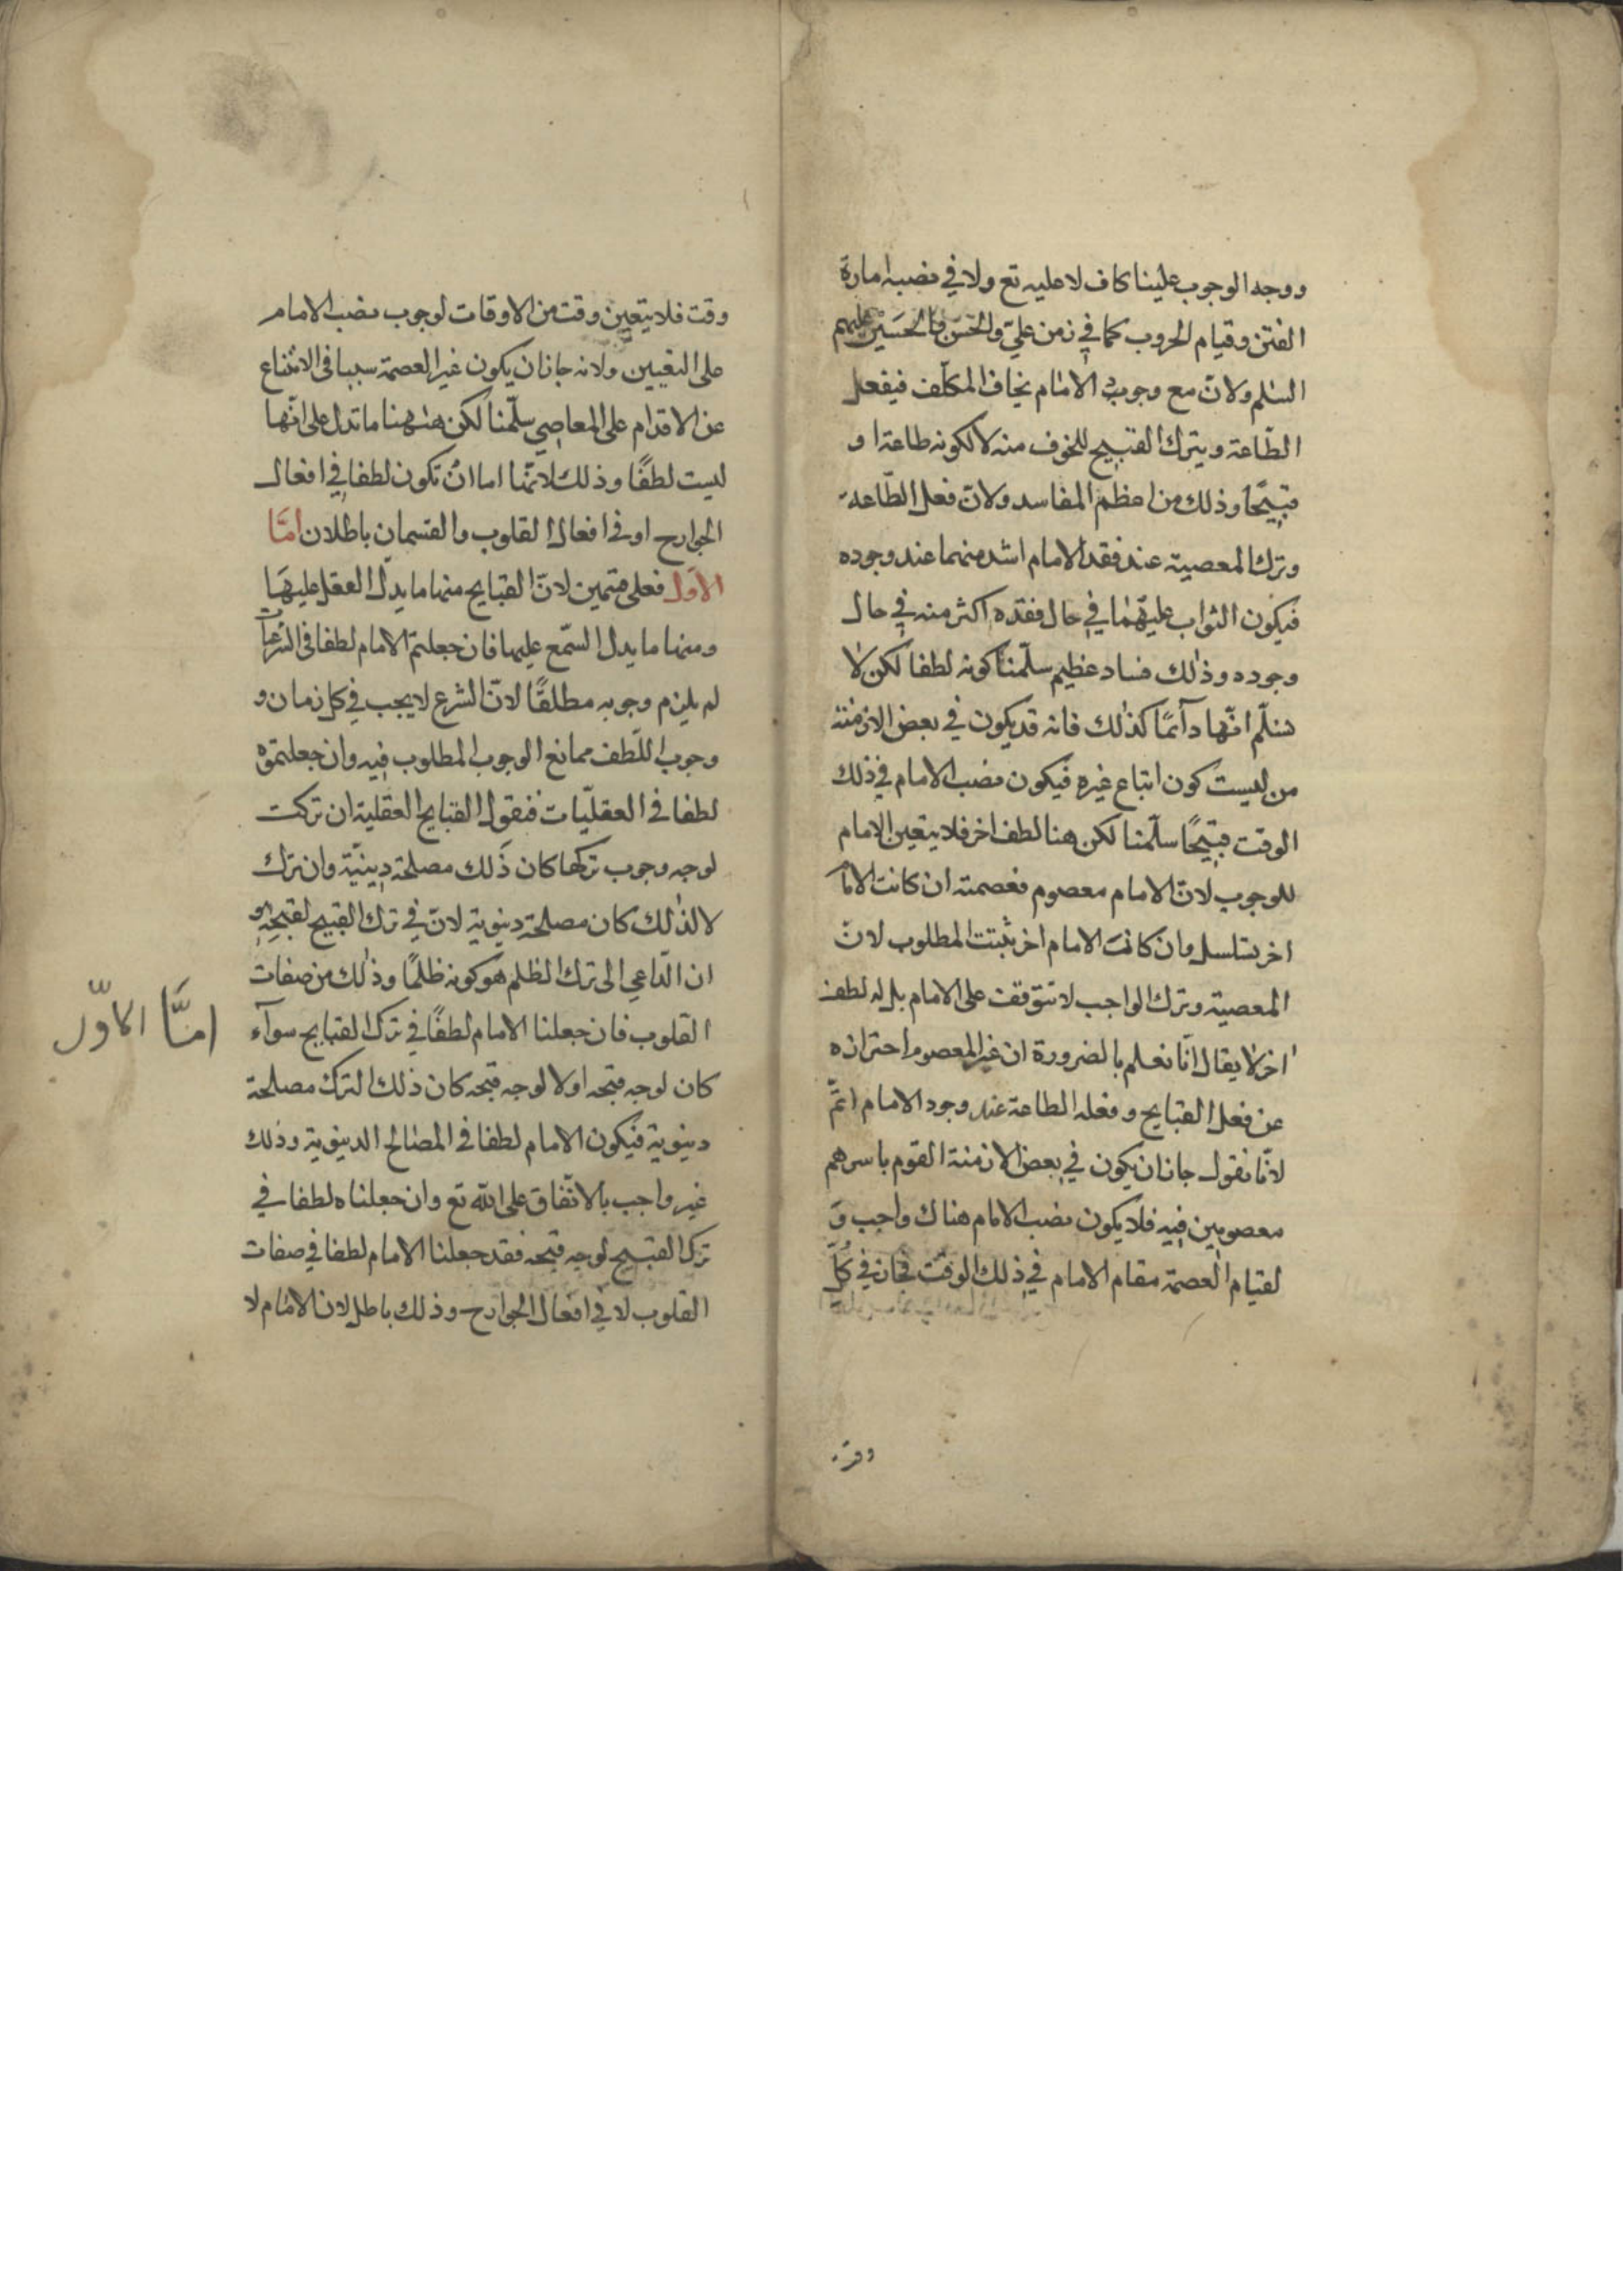 ووجه الوجوب علينا كاف لا عليه تع ولا في نصبه امارة
الفتن وقيام الحروب كما في زمن عليّ والحسن والحسين عليهم
السلم ولانّ مع وجود الامام يخاف المكلّف فيفعل
الطّاعة ويترك القبيح للخوف منه لا لكونه طاعة او
قبيحًا وذلك من اعظم المفاسد ولانّ فعل الطّاعة
وترك المعصية عند فقد الامام اشد منهما عند وجوده
فيكون الثواب عليهما في حال فقده اكثر منه في حال
وجوده وذلك فساد عظيم سلّمنا كونه لطفا لكن لا
نسلّم انّها دآئمًا كذلك فانه قد يكون في بعض الازمنة
من يستكون اتباع غيره فيكون نصب الامام في ذلك
الوقت قبيحًا سلّمنا لكن هنا لطف اخر فلا يتعين الامام
للوجوب لانّ الامام معصوم فعصمته ان كانت لامام
اخر تسلسل وان كانت لا لامام اخر ثبتت المطلوب لانّ
المعصية وترك الواجب لا تتوقف على الامام بل له لطف
اخر لا يقال انّا نعلم بالضرورة ان غير المعصوم احترازه
عن فعل القبايح وفعله الطاعة عند وجود الامام اتمّ
لانّا نقول جاز ان يكون في بعض الازمنة القوم باسرهم
معصومين فيه فلا يكون نصب الامام هناك واجب و
لقيام العصمة مقام الامام في ذلك الوقت فجاز في كلّ
وقت فلا يتعين وقت من الاوقات لوجوب نصب الامام
على التعيين ولانه جاز ان يكون غير العصمة سببا في الامتناع
عن الاقدام على المعاصي سلّمنا لكن ههنا ما تدل على انّها
ليست لطفًا وذلك لانّها اما ان تكون لطفا في افعال
الجوارح او في افعال القلوب والقسمان باطلان امّا
الاوّل فعلى قسمين لانّ القبايح منها ما يدلّ العقل عليها
ومنها ما يدل السّمع عليها فان جعلتم الامام لطفا في الشرعيات
لم يلزم وجوبه مطلقًا لانّ الشرع لا يجب في كل زمان و
وجوب اللّطف مانع الوجوب المطلوب فيه وان جعلتموه
لطفا في العقليّات فنقول القبايح العقلية ان تركت
لوجه وجوب تركها كان ذلك مصلحة دينيّة وان ترك
لا لذلك كان مصلحة دنيوية لانّ في ترك القبيح لقبحه هو
ان الدّاعي الى ترك الظلم هو كونه ظلمًا وذلك من صفات
القلوب فان جعلنا الامام لطفًا في ترك القبايح سوآء
كان لوجه قبحه او لا لوجه قبحه كان ذلك الترك مصلحة
دنيوية فيكون الامام لطفا في المصالح الدنيوية وذلك
غير واجب بالاتّفاق على الله تع وان جعلناه لطفا في
ترك القبيح لوجه قبحه فقد جعلنا الامام لطفا في صفات
القلوب لا في افعال الجوارح وذلك باطل لان الامام لا
امّا الاوّل